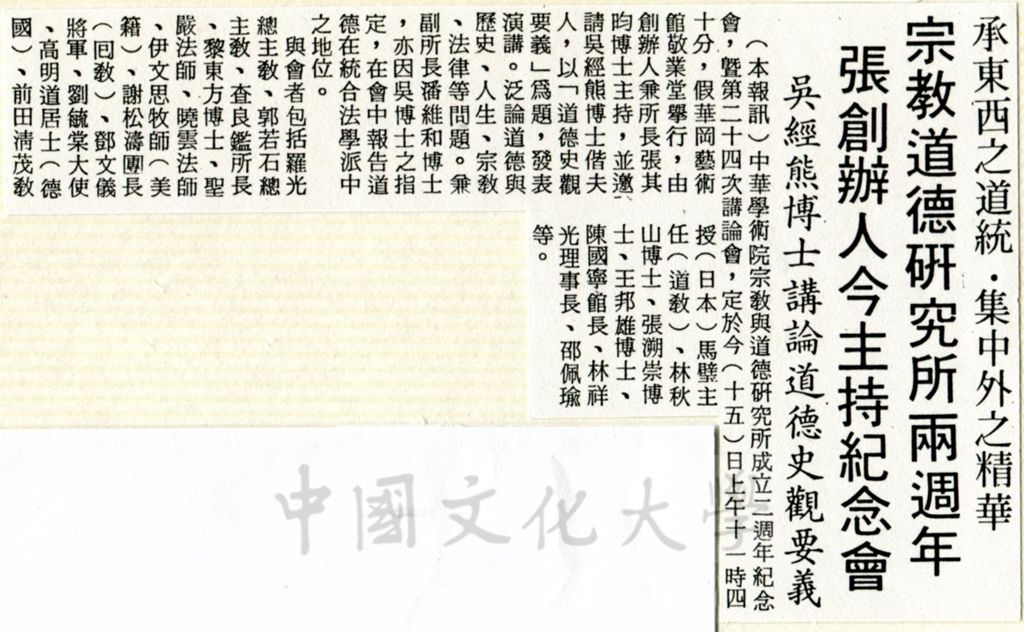 承東西之道統．集中外之精華
宗教道德研究所兩週年
張創辦人今主持紀念會
吳經熊博士講論道德史觀要義
（本報訊）中華學術院宗教與道德研究所成立二週年紀念
會，暨第二十四次講論會，定於今（十五）日上午十一時四
十分，假華岡藝術
館敬業堂舉行，由
創辦人兼所長張其
昀博士主持，並邀
請吳經熊博士偕夫
人，以「道德史觀
要義」爲題，發表
演講。泛論道德與
歷史、人生、宗教
、法律等問題。兼
副所長潘維和博士
，亦因吳博士之指
定，在會中報告道
德在統合法學派中
之地位。
與會者包括羅光
總主教、郭若石總
主教、查良鑑所長
、黎東方博士、聖
嚴法師、曉雲法師
、伊文思牧師（美
籍）、謝松濤團長
（回教）、鄧文儀
將軍、劉毓棠大使
、高明道居士（德
國）、前田清茂教
授（日本）馬壁主
任（道教）、林秋
山博士、張溯崇博
士、王邦雄博士、
陳國寧館長、林祥
光理事長、邵佩瑜
等。
中國文化大學